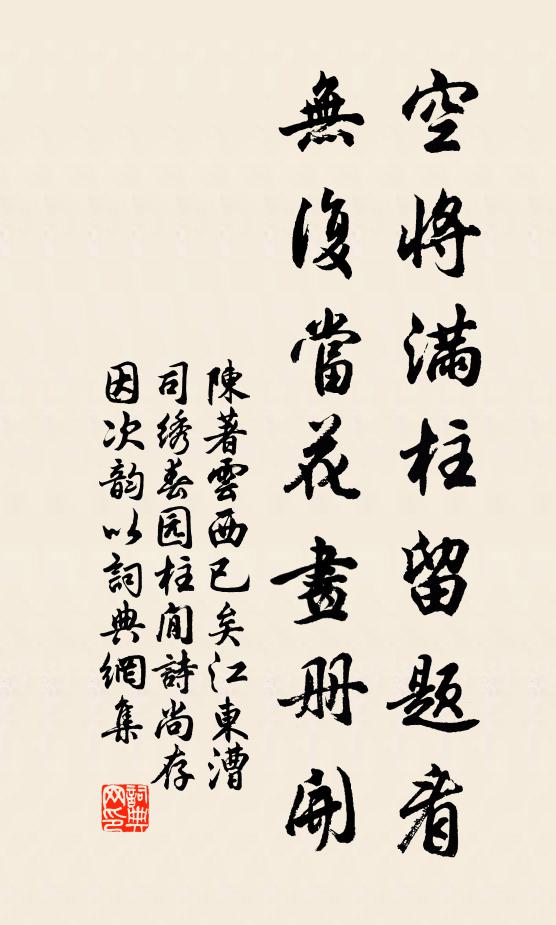 空將滿柱留題看
無復當花畫册開
陳著雲西已矣江東漕
司綉春园柱间詩尚存
因次韵以詞典網集
詞典网印